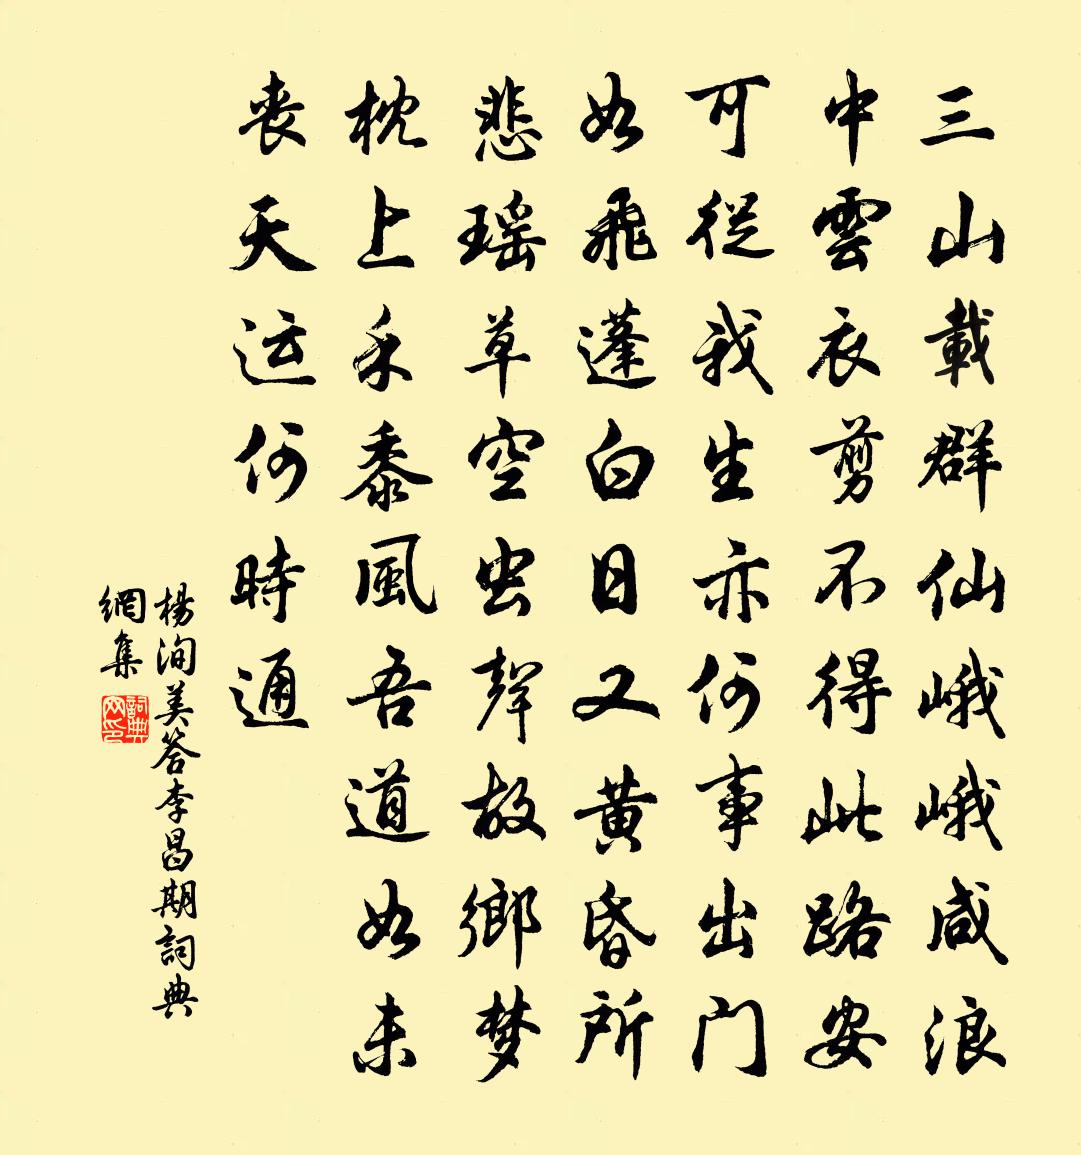 三山載群仙峨峨咸浪
中雲衣剪不得此路安
可從我生亦何事出門
如飛蓬白日又黃昏所
悲瑶草空虫聲故鄉梦
枕上禾黍風吾道如未
喪天运何時通
楊洵美答李昌期詞典
網集
詞典
网印